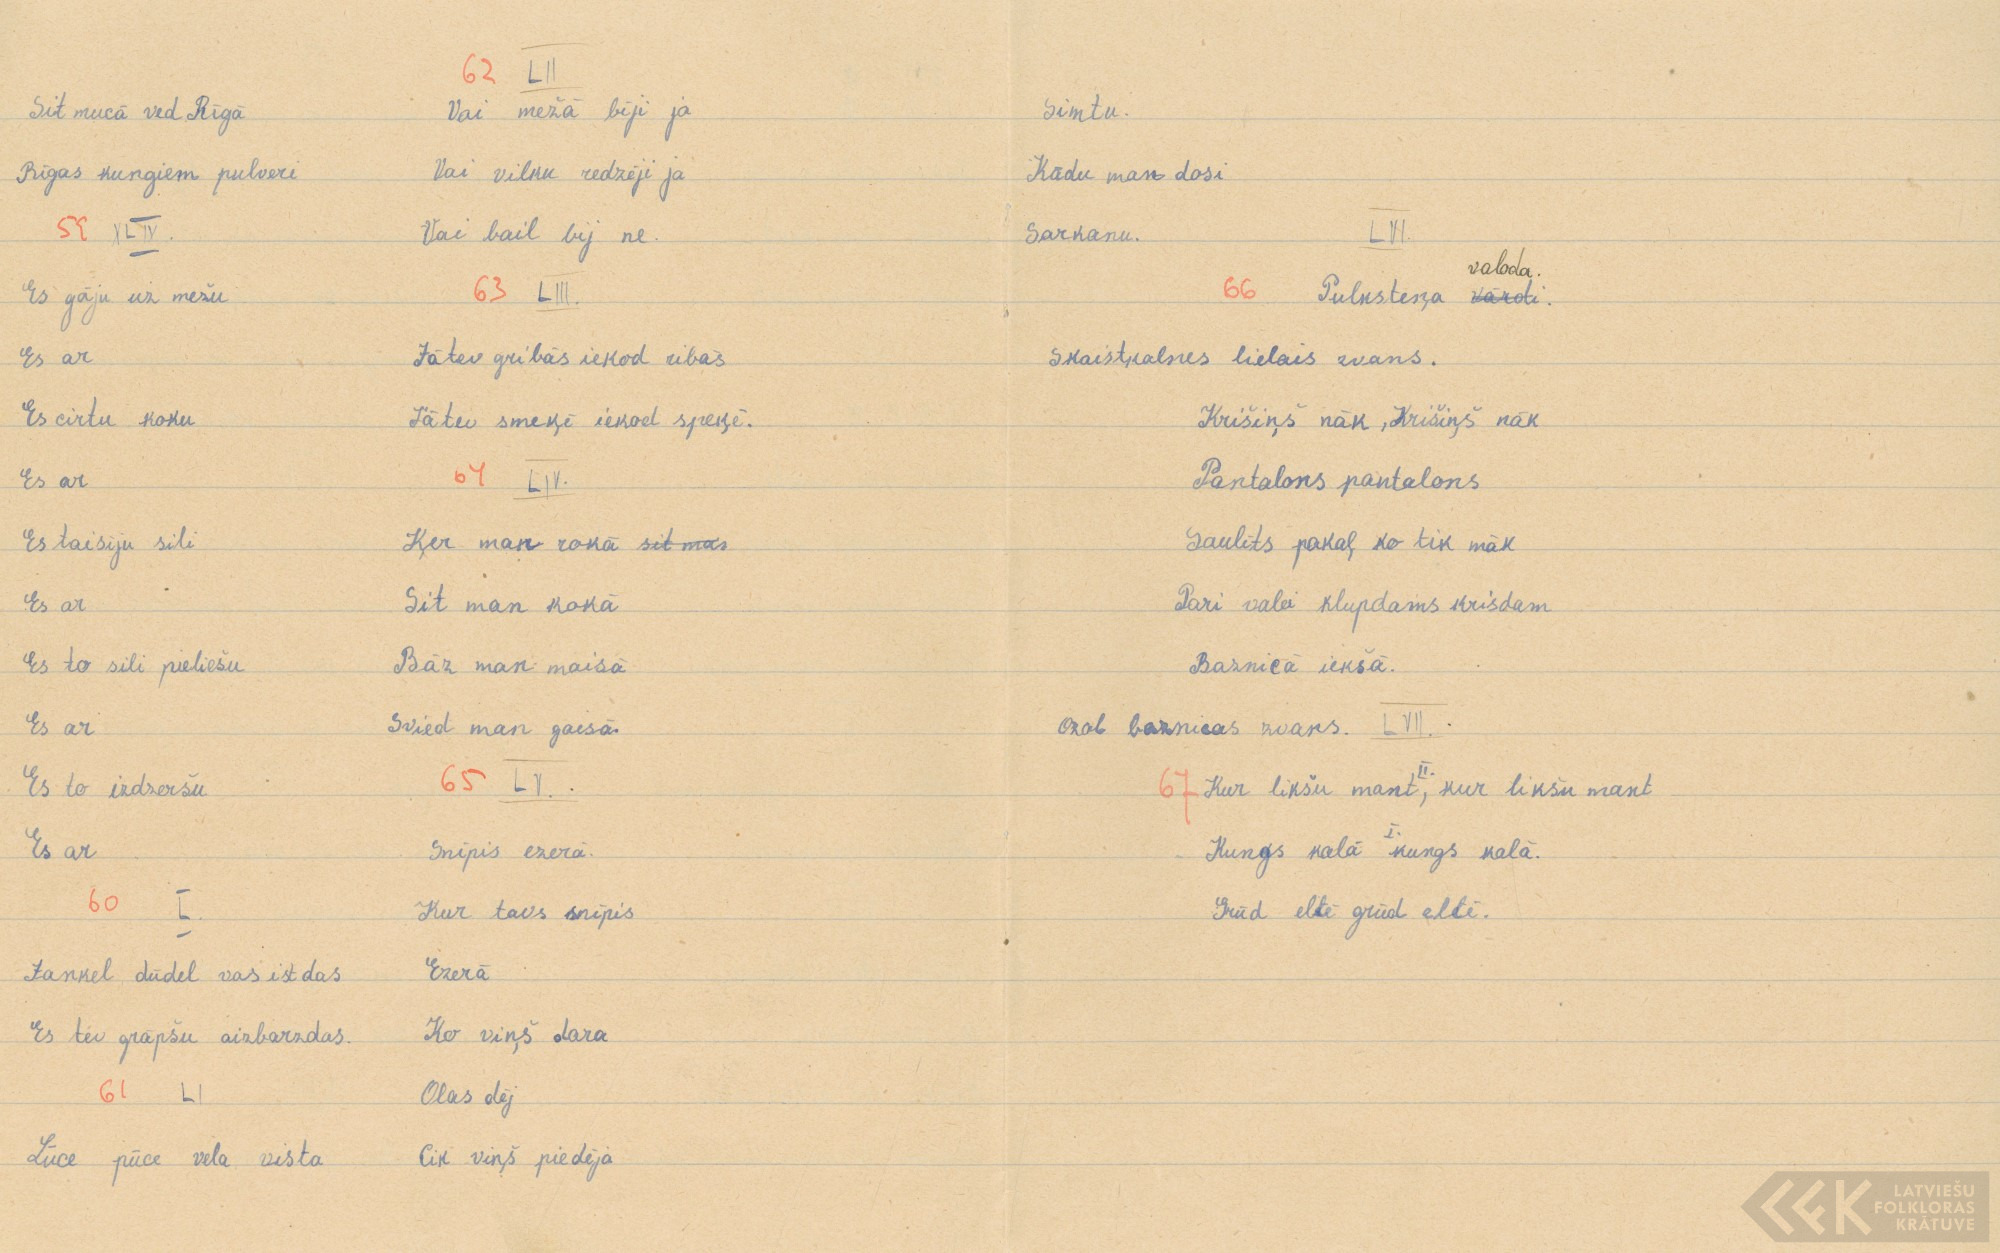 Sit mucā ved Rīgā
Rīgas kungiem pulveri
59 XLIV.
Es gāju uz mežu
Es ar
Es cirtu koku
Es ar
Es taisiju sili
Es ar
Es to sili pieliešu
Es ar
Es to izdzeršu
Es ar
60 L.
Jankel dūdel vas ist das
Es tev grāpšu aizbarzdas.
61 LI
Lūce pūce vela vista
62 LII
Vai mežā bīji ja
Vai vilku redzēji ja
Vai bail bij ne.
63 LIII.
Jātev gribās iekod ribās
Jātev smeķē iekod speķē.
64 LIV.
Ķer man rokā sit man
Sit man kokā
Bāz man maisā
Svied man gaisā.
65 LV.
Snīpis ezerā.
Kur tavs snīpis
Ezerā
Ko viņš dara
Olas dēj
Cik viņš piedēja
Simtu.
Kādu man dosi
Sarkanu.
LVI.
valoda.
66 Pulksteņa vārdi.
Skaistkalnes lielais zvans.
Krišiņš nāk, Krišiņš nāk
Pantalons pantalons
Saulīts pakaļ ko tik māk
Pari valei klupdams krisdam
Baznicā iekšā.
Ozol baznicas zvans. LVII.
67 Kur likšu mant, II. kur likšu mant
Kungs kalā I. kungs kalā.
Grūd eltē grūd eltē.
LATVIEŠU
FOLKLORAS
KRĀTUVE